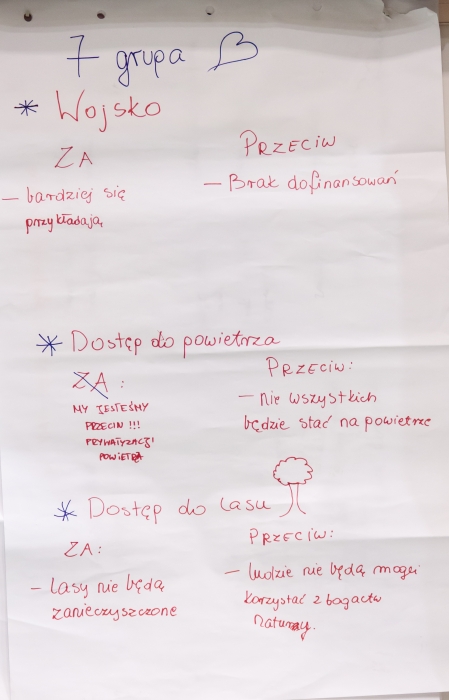 7 grupa
* Wojsko
ZA
- bardziej się
przykładają
PRZECIW
- Brak dofinansowań
* Dostęp do powietrza
ZA:
MY JESTEŚMY
PRZECIW!!!
PRYWATYZACJI
POWIETRZA
PRZECIW:
- nie wszystkich
będzie stać na powietrze
* Dostęp do lasu
ZA:
- Lasy nie będą
zanieczyszczone
PRZECIW:
- ludzie nie będą mogli
korzystać z bogactw
natury.